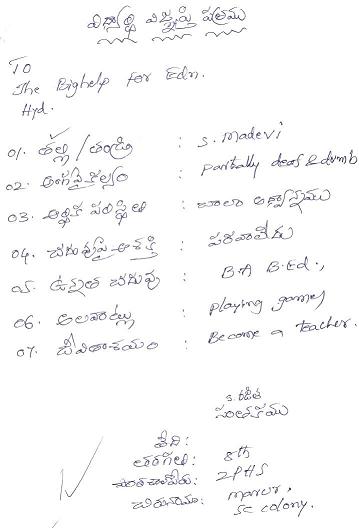 విద్యార్థి విజ్ఞప్తి పత్రము
TO
The Bighelp for Edn.
Hyd.
01. తల్లి / తండ్రి : S. Madevi
02. అంగవైకల్యం : Partially deaf & dumb
03. ఆర్థిక పరిస్థితి : చాలా అధ్వాన్నము
04. చదువుపై ఆసక్తి : పరవాలేదు
05. ఉన్నత చదువు : B.A B.Ed.,
06. అలవాట్లు : playing games
07. జీవితాశయం : Become a teacher.
S. రజిత
సంతకము
తేది:
తరగతి: 8th
ZPHS
చిరునామా: marur,
SC colony.